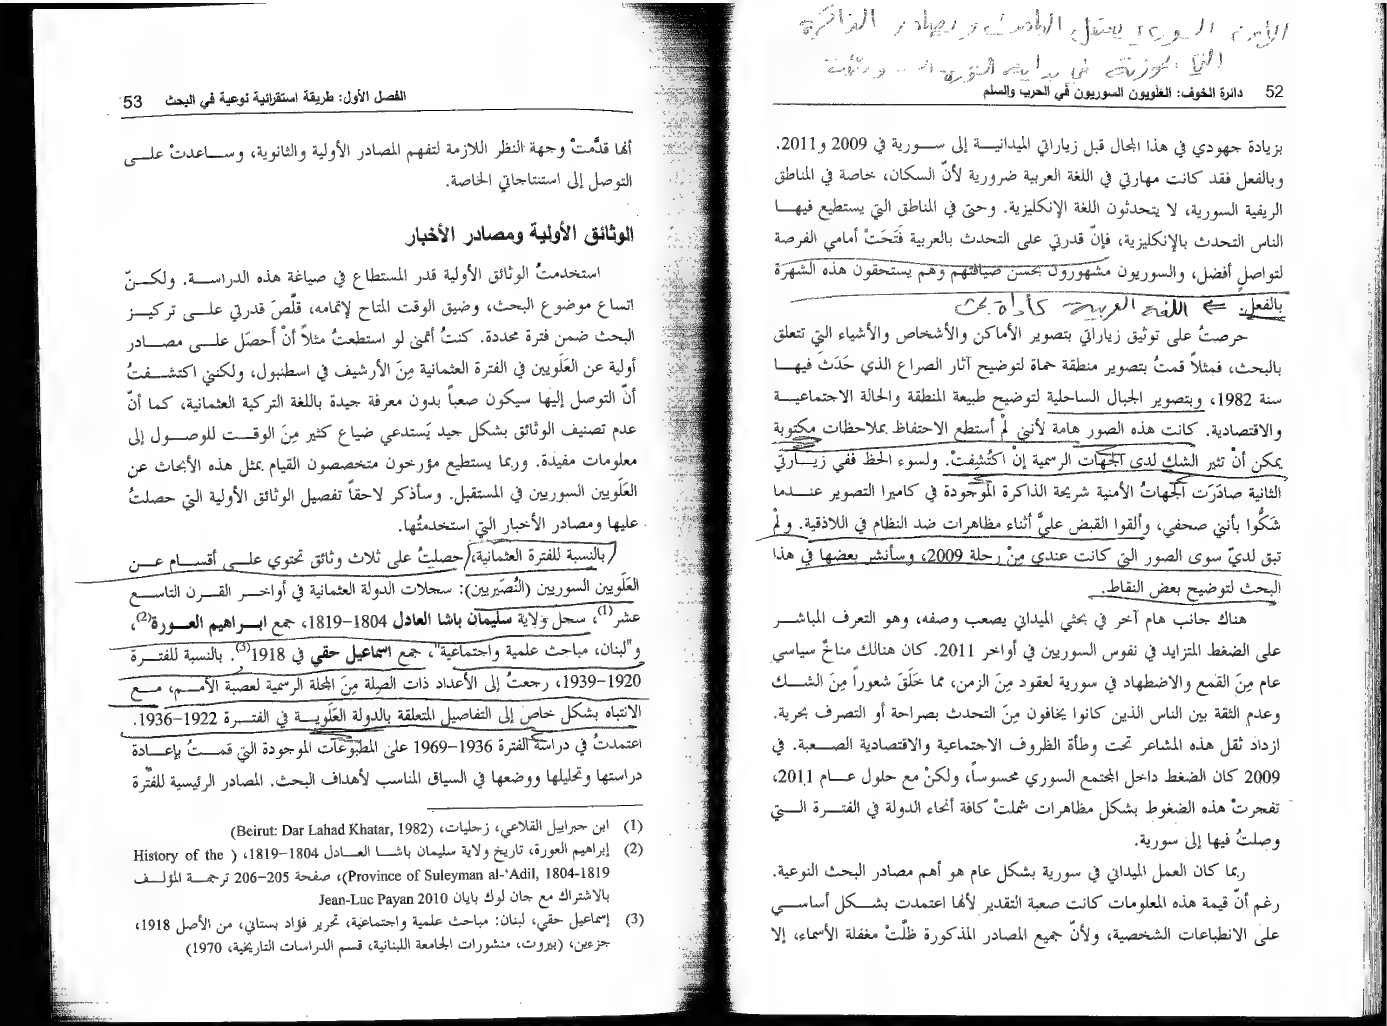 الأمن السوري يعتقل الباحث ويصادر الذاكرة
في بداية الثورة
52 دائرة الخوف: العلويون السوريون في الحرب والسلم
بزيادة جهودي في هذا المجال قبل زياراتي الميدانيـــة إلى ســـورية في 2009 و2011.
وبالفعل فقد كانت مهارتي في اللغة العربية ضرورية لأنّ السكان، خاصة في المناطق
الريفية السورية، لا يتحدثون اللغة الإنكليزية. وحتى في المناطق التي يستطيع فيهـــا
الناس التحدث بالإنكليزية، فإنّ قدرتي على التحدث بالعربية فَتَحَتْ أمامي الفرصة
لتواصلٍ أفضل، والسوريون مشهورون بحسن ضيافتهم وهم يستحقون هذه الشهرة
بالفعل. ⇐ اللغة العربية كأداة بحث
حرصتُ على توثيق زياراتي بتصوير الأماكن والأشخاص والأشياء التي تتعلق
بالبحث، فمثلاً قمتُ بتصوير منطقة حماة لتوضيح آثار الصراع الذي حَدَثَ فيهـــا
سنة 1982، وبتصوير الجبال الساحلية لتوضيح طبيعة المنطقة والحالة الاجتماعيـــة
والاقتصادية. كانت هذه الصور هامة لأنني لمْ أستطع الاحتفاظ بملاحظات مكتوبة
يمكن أنْ تثير الشك لدى الجهات الرسمية إنْ اكتُشِفتْ. ولسوء الحظ ففي زيـــارتي
الثانية صادَرَت الجهاتُ الأمنية شريحة الذاكرة الموجودة في كاميرا التصوير عنـــدما
شَكُّوا بأنني صحفي، وألقوا القبض عليَّ أثناء مظاهرات ضد النظام في اللاذقية. ولمْ
تبق لديّ سوى الصور التي كانت عندي مِنْ رحلة 2009، وسأنشر بعضها في هذا
البحث لتوضيح بعض النقاط.
هناك جانب هام آخر في بحثي الميداني يصعب وصفه، وهو التعرف المباشـــر
على الضغط المتزايد في نفوس السوريين في أواخر 2011. كان هنالك مناخٌ سياسي
عام مِنَ القمع والاضطهاد في سورية لعقود مِنَ الزمن، مما خَلَقَ شعوراً مِنَ الشـــك
وعدم الثقة بين الناس الذين كانوا يخافون مِنَ التحدث بصراحة أو التصرف بحرية.
ازداد ثقل هذه المشاعر تحت وطأة الظروف الاجتماعية والاقتصادية الصـــعبة. في
2009 كان الضغط داخل المجتمع السوري محسوساً، ولكنْ مع حلول عـــام 2011،
تفجرتْ هذه الضغوط بشكل مظاهرات شملتْ كافة أنحاء الدولة في الفتـــرة الـــتي
وصلتُ فيها إلى سورية.
ربما كان العمل الميداني في سورية بشكل عام هو أهم مصادر البحث النوعية.
رغم أنّ قيمة هذه المعلومات كانت صعبة التقدير لأنها اعتمدت بشـــكل أساســـي
على الانطباعات الشخصية، ولأنّ جميع المصادر المذكورة ظلّتْ مغفلة الأسماء، إلا
الفصل الأول: طريقة استقرائية نوعية في البحث 53
أنها قدَّمتْ وجهة النظر اللازمة لتفهم المصادر الأولية والثانوية، وســـاعدتْ علـــى
التوصل إلى استنتاجاتي الخاصة.
الوثائق الأولية ومصادر الأخبار
استخدمتُ الوثائق الأولية قدر المستطاع في صياغة هذه الدراســـة. ولكـــنّ
اتساع موضوع البحث، وضيق الوقت المتاح لإتمامه، قلَّصَ قدرتي علـــى تركيـــز
البحث ضمن فترة محددة. كنتُ أتمنى لو استطعتُ مثلاً أنْ أحصَل علـــى مصـــادر
أولية عن العَلَويين في الفترة العثمانية مِنَ الأرشيف في اسطنبول، ولكنني اكتشـــفتُ
أنّ التوصل إليها سيكون صعباً بدون معرفة جيدة باللغة التركية العثمانية، كما أنّ
عدم تصنيف الوثائق بشكل جيد يَستدعي ضياع كثير مِنَ الوقـــت للوصـــول إلى
معلومات مفيدة. وربما يستطيع مؤرخون متخصصون القيام بمثل هذه الأبحاث عن
العَلَويين السوريين في المستقبل. وسأذكر لاحقاً تفصيل الوثائق الأولية التي حصلتُ
عليها ومصادر الأخبار التي استخدمتُها.
بالنسبة للفترة العثمانية، حصلتُ على ثلاث وثائق تحتوي علـــى أقســـام عـــن
العَلَويين السوريين (النُصَيريين): سجلات الدولة العثمانية في أواخـــر القـــرن التاســـع
عشر(1)، سجل ولاية سليمان باشا العادل 1804-1819، جمع ابـــراهيم العـــورة(2)،
و"لبنان، مباحث علمية واجتماعية"، جمع اسماعيل حقي في 1918(3). بالنسبة للفتـــرة
1920-1939، رجعتُ إلى الأعداد ذات الصلة مِنَ المجلة الرسمية لعصبة الأمـــم، مـــع
الانتباه بشكل خاص إلى التفاصيل المتعلقة بالدولة العَلَويـــة في الفتـــرة 1922-1936.
اعتمدتُ في دراسة الفترة 1936-1969 على المطبوعات الموجودة التي قمـــتُ بإعـــادة
دراستها وتحليلها ووضعها في السياق المناسب لأهداف البحث. المصادر الرئيسية للفترة
(1) ابن جبرابيل القلاعي، زجليات، (Beirut: Dar Lahad Khatar, 1982)
(2) إبراهيم العورة، تاريخ ولاية سليمان باشـــا العـــادل 1804-1819، ( History of the
Province of Suleyman al-'Adil, 1804-1819)، صفحة 205-206 ترجمـــة المؤلـــف
بالاشتراك مع جان لوك بايان Jean-Luc Payan 2010
(3) إسماعيل حقي، لبنان: مباحث علمية واجتماعية، تحرير فؤاد بستاني، من الأصل 1918،
جزءين، (بيروت، منشورات الجامعة اللبنانية، قسم الدراسات التاريخية، 1970)